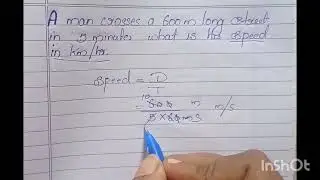 A man crosses a 600m long street
in 5 minutes what is his speed
in km/hr.
Speed = D
T
10
600 m m/s
5 × 60
InShOt